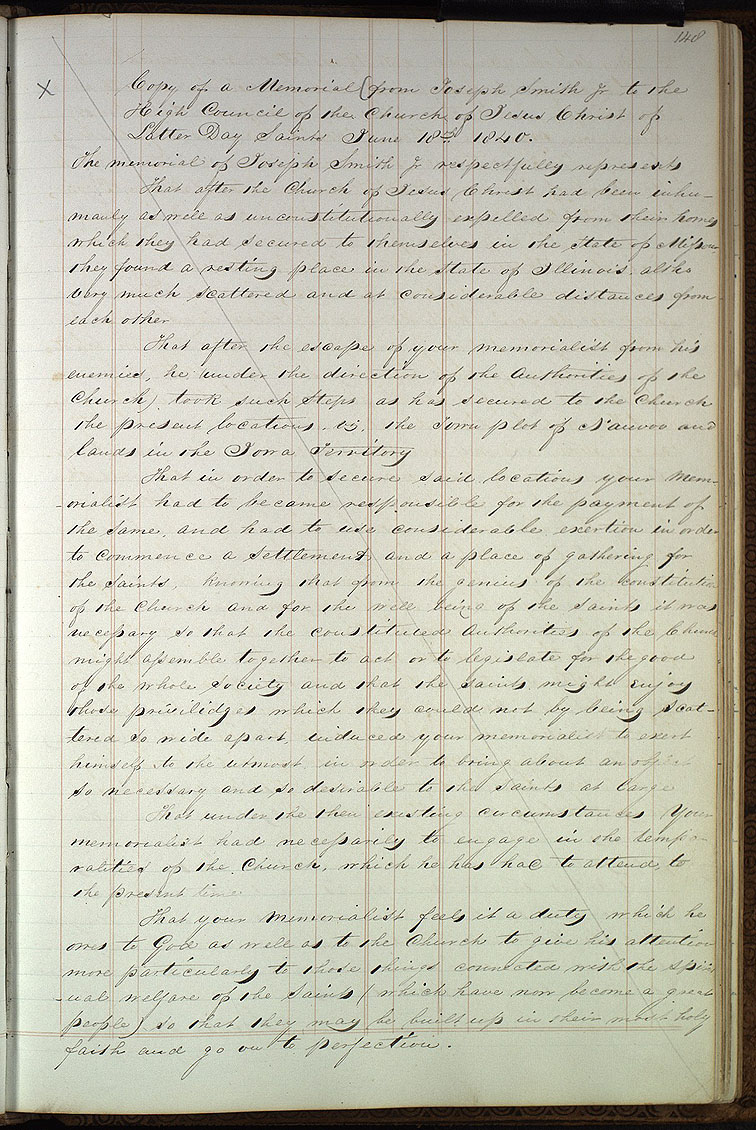 148
X
Copy of a Memorial (from Joseph Smith Jr to the
High Council of the Church of Jesus Christ of
Latter Day Saints June 18th 1840.
The memorial of Joseph Smith Jr respectfully represents
That after the Church of Jesus Christ had been inhu-
manly as well as unconstitutionally expelled from their homes
which they had secured to themselves in the State of Missouri
they found a resting place in the State of Illinois altho
very much scattered and at considerable distances from
each other
That after the escape of your memorialist from his
enemies, he (under the direction of the Authorities of the
Church) took such steps as has secured to the Church
the present locations. viz the Town plot of Nauvoo and
lands in the Iowa Territory
That in order to secure said locations your Mem-
-orialist had to became responsible for the payment of
the same, and had to use considerable exertion in order
to commence a settlement, and a place of gathering for
the saints, knowing that from the genius of the constitution
of the Church and for the well being of the Saints it was
necessary so that the constituted Authorities of the Church
might assemble together to act or to legislate for the good
of the whole society and that the saints might enjoy
those privilidges which they could not by being scat-
tered so wide apart, induced your memorialist to exert
himself to the utmost, in order to bring about an object
so necessary and so desirable to the Saints at large
That under the then existing circumstances Your
memorialist had necessarily to engage in the tempo-
ralities of the Church, which he has had to attend, to
the present time
That your Memorialist feels it a duty which he
owes to God as well as to the Church to give his attention
more particularly to those things connected with the spirit
-ual welfare of the Saints (which have now become a great
people) so that they may be built up in their most holy
faith and go on to perfection.